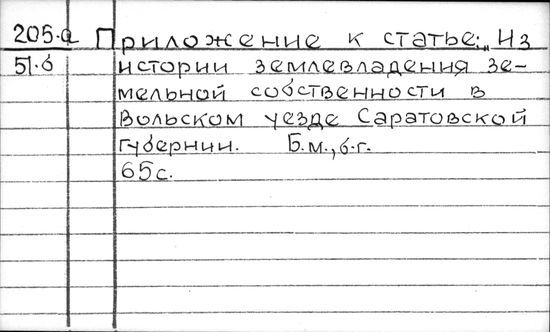 205.а Приложение к статье: „Из
51.б истории землевладения зе-
мельной собственности в
Вольском уезде Саратовской
губернии. Б.м., б.г.
65с.